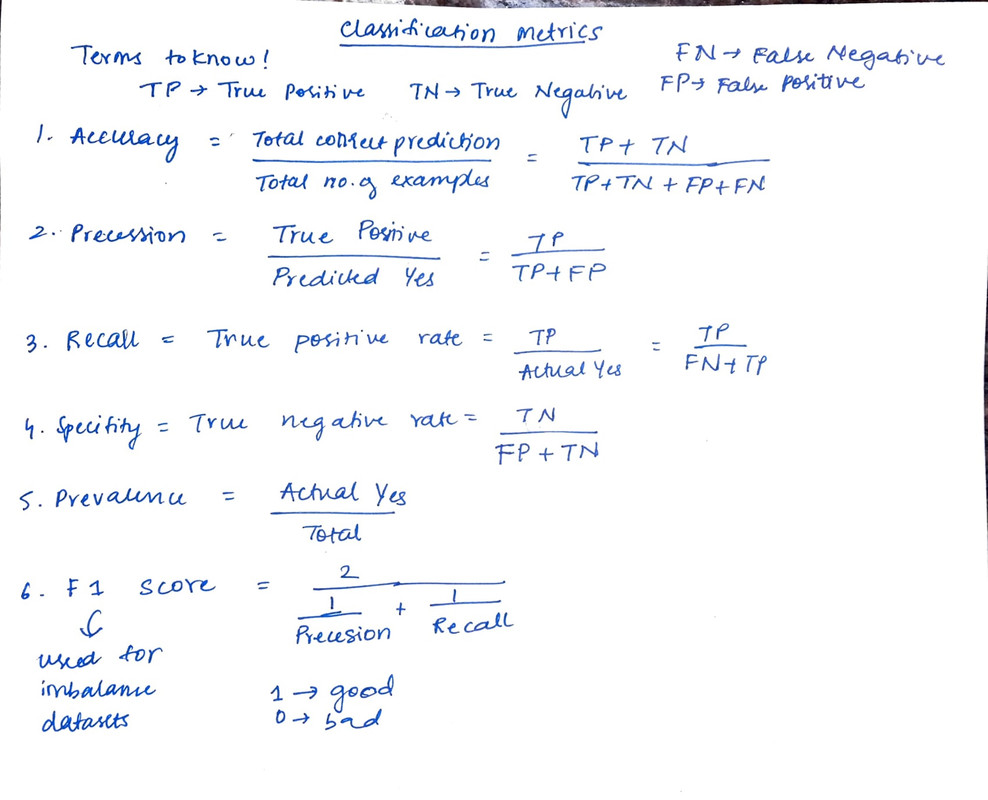 Classification Metrics
Terms to know!
FN → False Negative
TP → True Positive TN → True Negative FP → False Positive
1. Accuracy = Total correct prediction / Total no. of examples = TP + TN / TP + TN + FP + FN
2. Precession = True Positive / Predicted Yes = TP / TP + FP
3. Recall = True positive rate = TP / Actual Yes = TP / FN + TP
4. Specifity = True negative rate = TN / FP + TN
5. Prevalence = Actual Yes / Total
6. F1 score = 2 / 1 / Precesion + 1 / Recall
used for
imbalance
datasets
1 → good
0 → bad